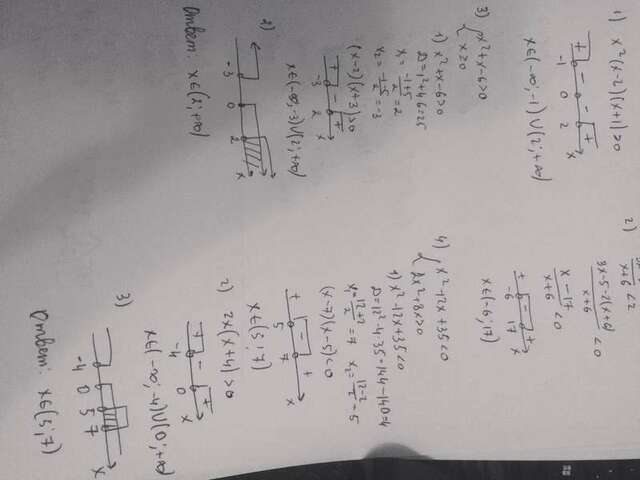 1) x²(x-2)(x+1)>0
+ - - +
-1 0 2 x
x∈(-∞;-1)∪(2;+∞)
2)
x+6 <2
3x-5-2(x+6)
x+6 <0
x-17
x+6 <0
+ - +
-6 17 x
x∈(-6;17)
3) { x²+x-6>0
x≥0
1) x²+x-6>0
D=1²+4·6=25
x₁= (-1+5)/2 =2
x₂= (-1-5)/2 =-3
(x-2)(x+3)>0
+ - +
-3 2 x
x∈(-∞;-3)∪(2;+∞)
2)
-3 0 2 x
Ответ: x∈(2;+∞)
4) { x²-12x+35<0
2x²+8x>0
1) x²-12x+35<0
D=12²-4·35=144-140=4
x₁= (12+2)/2 =7 x₂= (12-2)/2 =5
(x-7)(x-5)<0
+ - +
5 7 x
x∈(5;7)
2) 2x(x+4)>0
+ - +
-4 0 x
x∈(-∞;-4)∪(0;+∞)
3)
-4 0 5 7 x
Ответ: x∈(5;7)